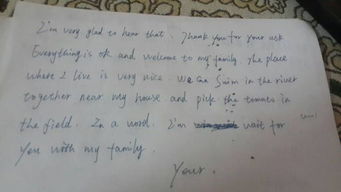 I'm very glad to hear that. Thank you for your ask
Everything is ok and welcome to my family. The place
where I live is very nice. We can Swim in the river
together near my house and pick the tomats in
the field. In a word. I'm wait for
you with my family.
Yours.